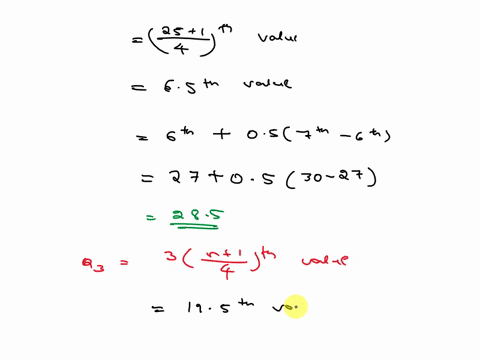 = (25+1/4)th value
= 6.5th value
= 6th + 0.5(7th - 6th)
= 27 + 0.5 (30-27)
= 28.5
Q3 = 3(n+1/4)th value
= 19.5th